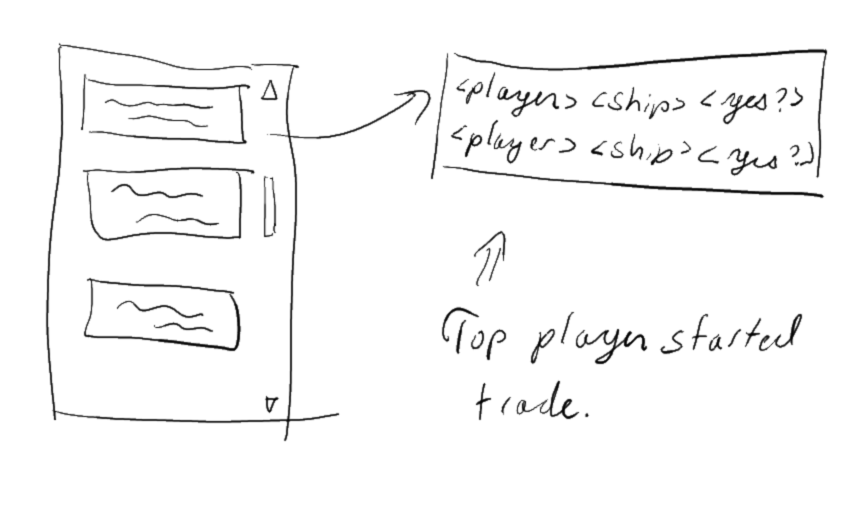 <player> <ship> <yes?>
<player> <ship> <yes?>
Top player started
trade.